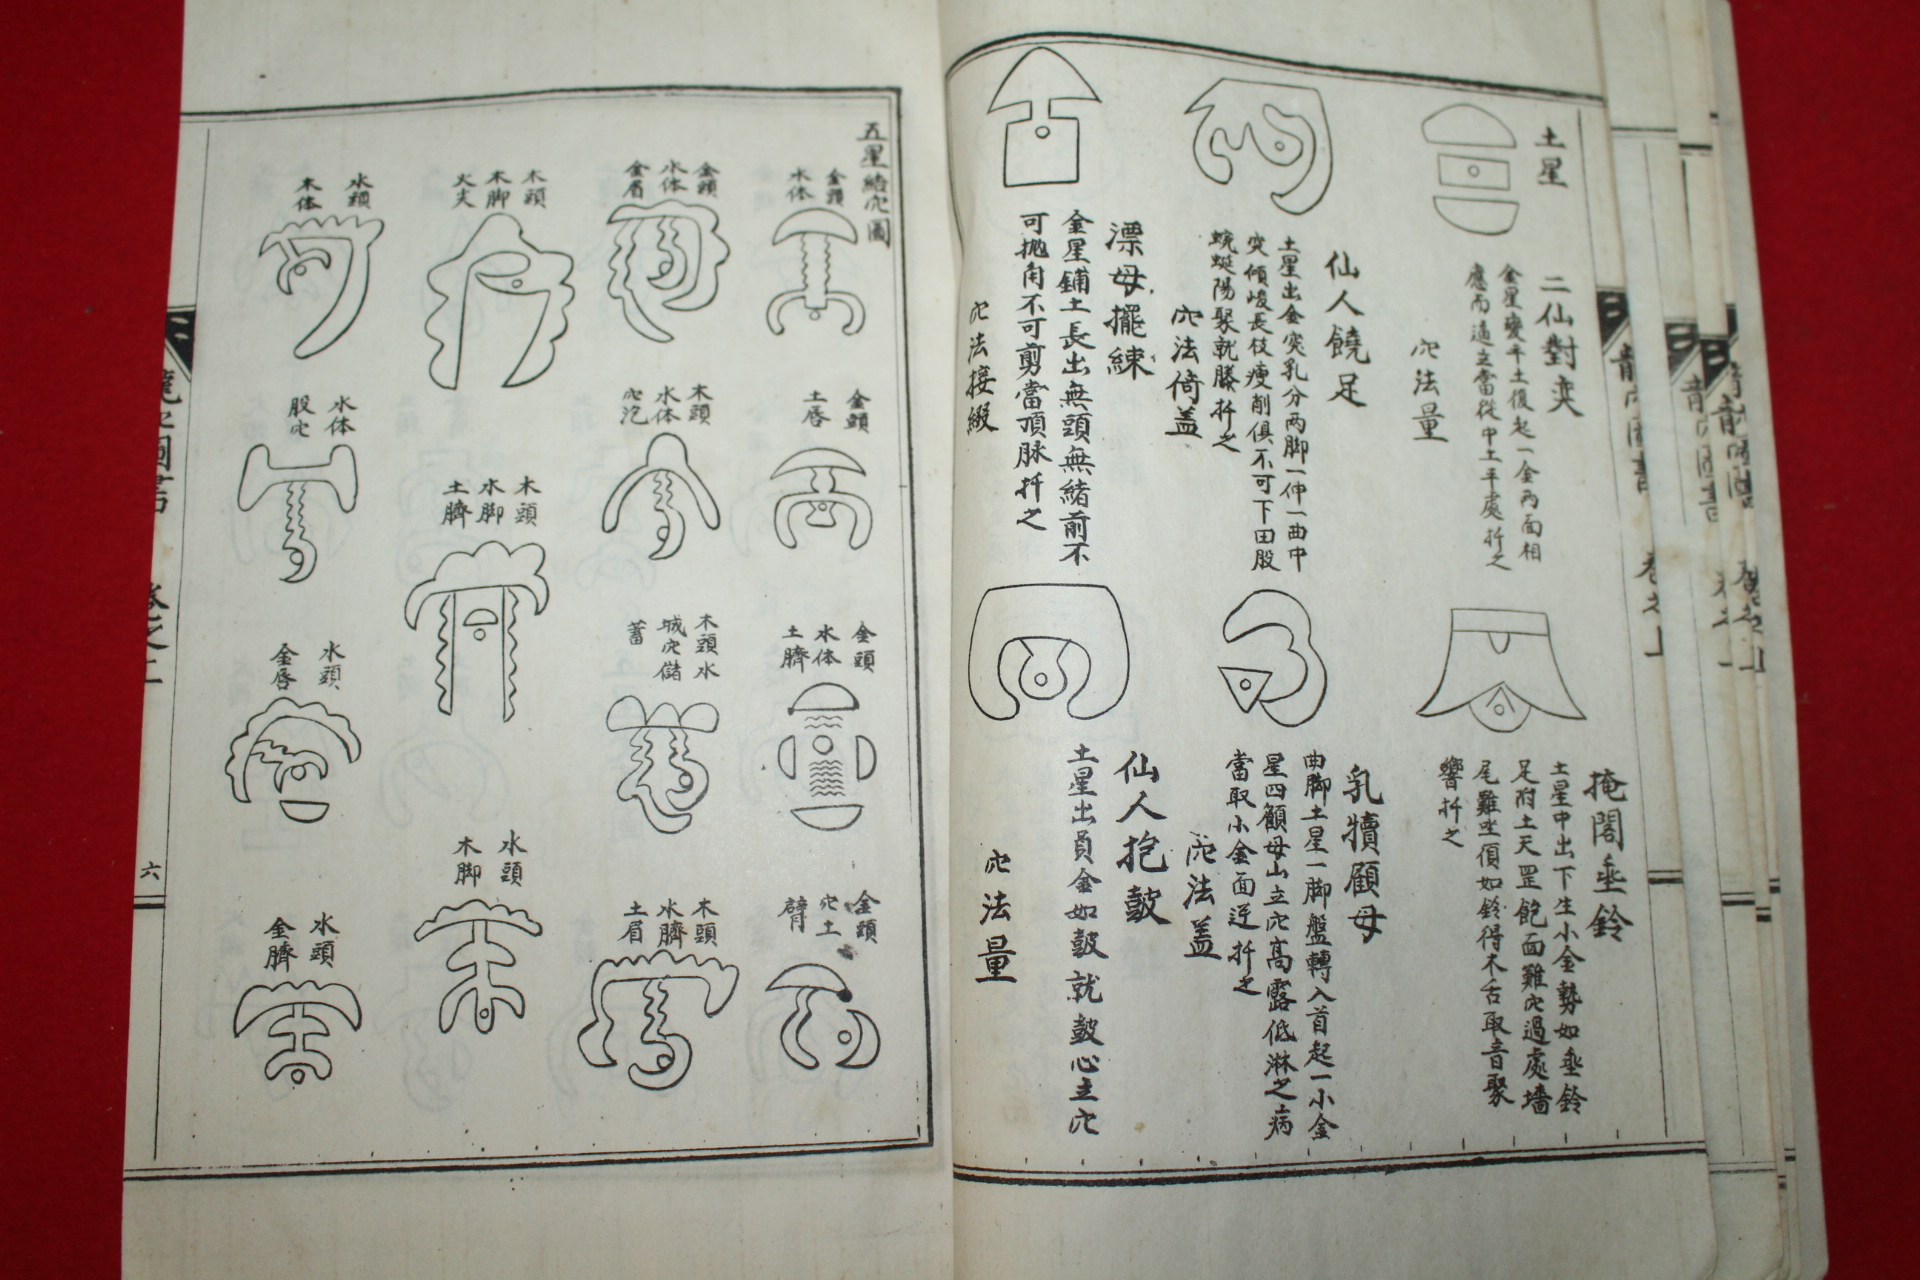 土星
二仙對奕
金星變平土復起一金两面相
應而過立當從中土平處扦之
穴法量
仙人饒足
土星出金突乳分两脚一伸一曲中
突傾峻長枝瘦削俱不可下田股
蜿蜒陽聚就膝扦之
穴法倚盖
漂母擺練
金星鋪土長出無頭無緒前不
可抛角不可剪當頂脉扦之
穴法接綴
掩閣垂鈴
土星中出下生小金勢如垂鈴
足附土天罡飽面難穴過處墻
尾難坐傎如鈴得木舌取音聚
響扦之
乳犢顧母
曲脚土星一脚盤轉入首起一小金
星四顧母山立穴高露低淋之病
當取小金面逆扦之
穴法盖
仙人抱皷
土星出員金如皷就皷心立穴
穴法量
五星結穴圖
金頭
水体
金頭
土唇
金頭
水体
土臍
金頭
穴土
臂
金頭
水体
金眉
木頭
水体
穴
木頭水
城穴儲
蓄
木頭
水臍
土眉
木頭
木脚
火
木頭
水脚
土臍
水頭
木脚
水頭
木体
水体
股穴
水頭
金唇
水頭
金臍
六